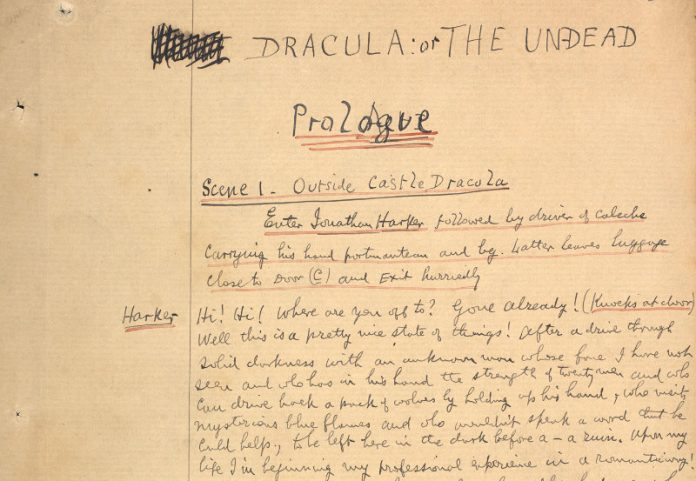 DRACULA: or THE UN-DEAD
Prologue
Scene 1. Outside Castle Dracula
Enter Jonathan Harker followed by driver of caleche
carrying his hand portmanteau and bag. Latter leaves luggage
close to Door (C) and Exit hurriedly
Harker Hi! Hi! Where are you off to? Gone already! (Knocks at door)
Well this is a pretty nice state of things! After a drive through
solid darkness with an unknown man whose face I have not
seen and who has in his hand the strength of twenty men and who
can drive back a pack of wolves by holding up his hand, who visits
mysterious blue flames and who wouldn't speak a word that he
could help, to be left here in the dark before a – a ruin. Upon my
life I'm beginning my professional experience in a romantic way!